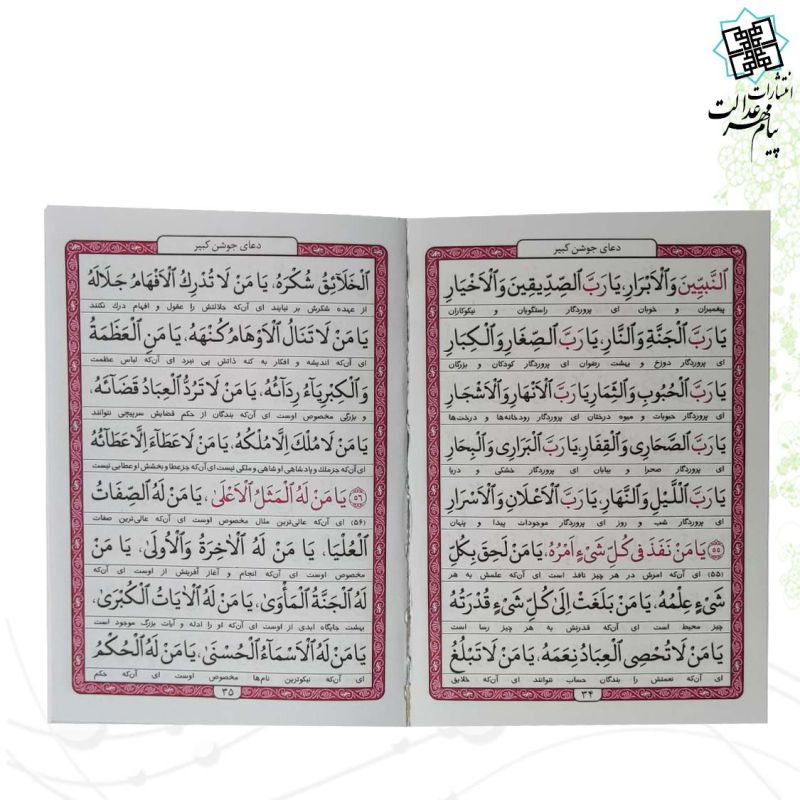 انتشارات
پیام مهر عدالت
دعای جوشن کبیر
النَّبِيّينَ وَالْاَبْرارِ، يا رَبَّ الصِّدّيقينَ وَالْاَخْيارِ
پیغمبران و خوبان ای پروردگار راستگویان و نیکوکاران
يا رَبَّ الْجَنَّةِ وَالنّارِ، يا رَبَّ الصِّغارِ وَالْكِبارِ
ای پروردگار دوزخ و بهشت رضوان ای پروردگار کودکان و بزرگان
يا رَبَّ الْحُبُوبِ وَالثِّمارِ يا رَبَّ الْاَنْهارِ وَالْاَشْجارِ
ای پروردگار حبوبات و میوه درختان ای پروردگار رودخانه‌ها و درخت‌ها
يا رَبَّ الصَّحاری وَالْقِفارِ، يا رَبَّ الْبَراری وَالْبِحارِ
ای پروردگار صحرا و بیابان ای پروردگار خشکی و دریا
يا رَبَّ اللَّيْلِ وَالنَّهارِ، يا رَبَّ الْاَعْلانِ وَالْاَسْرارِ
ای پروردگار شب و روز ای پروردگار موجودات پیدا و پنهان
۵۵ يا مَنْ نَفَذَ فی كُلِّ شَیْءٍ اَمْرُهُ، يا مَنْ لَحِقَ بِكُلِّ
(۵۵) ای آن‌که امرش در هر چیز نافذ است ای آن‌که علمش به هر
شَیْءٍ عِلْمُهُ، يا مَنْ بَلَغَتْ اِلیٰ كُلِّ شَیْءٍ قُدْرَتُهُ
چیز محیط است ای آن که قدرتش به هر چیز رسا است
يا مَنْ لا تُحْصِی الْعِبادُ نِعَمَهُ، يا مَنْ لا تَبْلُغُ
ای آن‌که نعمتش را بندگان حساب نتوانند ای آن‌که خلایق
۳۴
دعای جوشن کبیر
الْخَلآئِقُ شُكْرَهُ، يا مَنْ لا تُدْرِكُ الْاَفْهامُ جَلالَهُ
از عهده شکرش بر نیایند ای آن‌که جلالتش را عقول و افهام درك نکنند
يا مَنْ لا تَنالُ الْاَوْهامُ كُنْهَهُ، يا مَنِ الْعَظَمَةُ
ای آن‌که اندیشه و افکار به کنه ذاتش پی نبرد ای آن‌که لباس عظمت
وَالْكِبْرِيآءُ رِدآئُهُ، يا مَنْ لا تَرُدُّ الْعِبادُ قَضآئَهُ،
و بزرگی مخصوص اوست ای آن‌که بندگان از حکم قضایش سرپیچی نتوانند
يا مَنْ لا مُلْكَ اِلّا مُلْكُهُ، يا مَنْ لا عَطآءَ اِلّا عَطآئُهُ
ای آن‌که جز ملك و پادشاهی او شاهی و ملکی نیست ای آن‌که جز عطا و بخشش او عطایی نیست
۵۶ يا مَنْ لَهُ الْمَثَلُ الْاَعْلیٰ، يا مَنْ لَهُ الصِّفاتُ
(۵۶) ای آن‌که عالی‌ترین مثال مخصوص اوست ای آن‌که عالی‌ترین صفات
الْعُلْيا، يا مَنْ لَهُ الْاٰخِرَةُ وَالْاُولیٰ، يا مَنْ
مخصوص اوست ای آن‌که انجام و آغاز آفرینش از اوست ای آن‌که
لَهُ الْجَنَّةُ الْمَأْویٰ، يا مَنْ لَهُ الْاٰياتُ الْكُبْریٰ،
بهشت جایگاه ابدی از اوست ای آن‌که او را ادله و آیات بزرگ موجود است
يا مَنْ لَهُ الْاَسْمآءُ الْحُسْنیٰ، يا مَنْ لَهُ الْحُكْمُ
ای آن‌که نیکوترین نام‌ها مخصوص اوست ای آن‌که حکم
۳۵